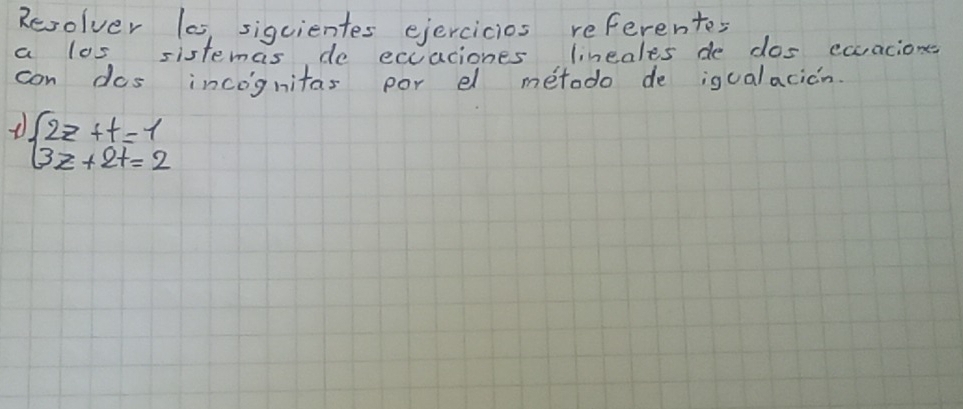 Resolver los siguientes ejercicios referentes
a los sistemas de ecuaciones lineales de dos ecuaciones
con dos incógnitas por el método de igualación.
1) {2z + t = 1
3z + 2t = 2